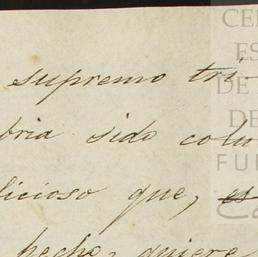 supremo tri-
bria sido colu
licioso que, es
hecho, quiere
CE
ES
DE
DE
FU